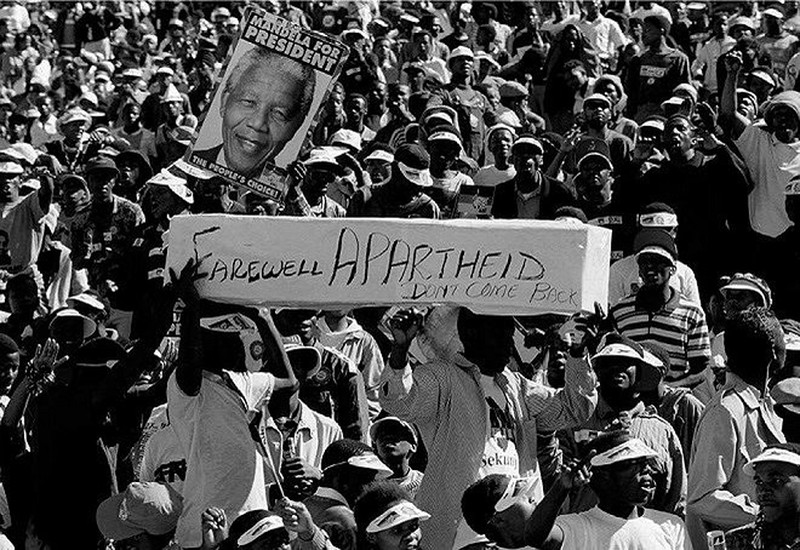 MANDELA FOR
PRESIDENT
THE PEOPLE'S CHOICE!
FAREWELL APARTHEID
DONT COME BACK
Sekun